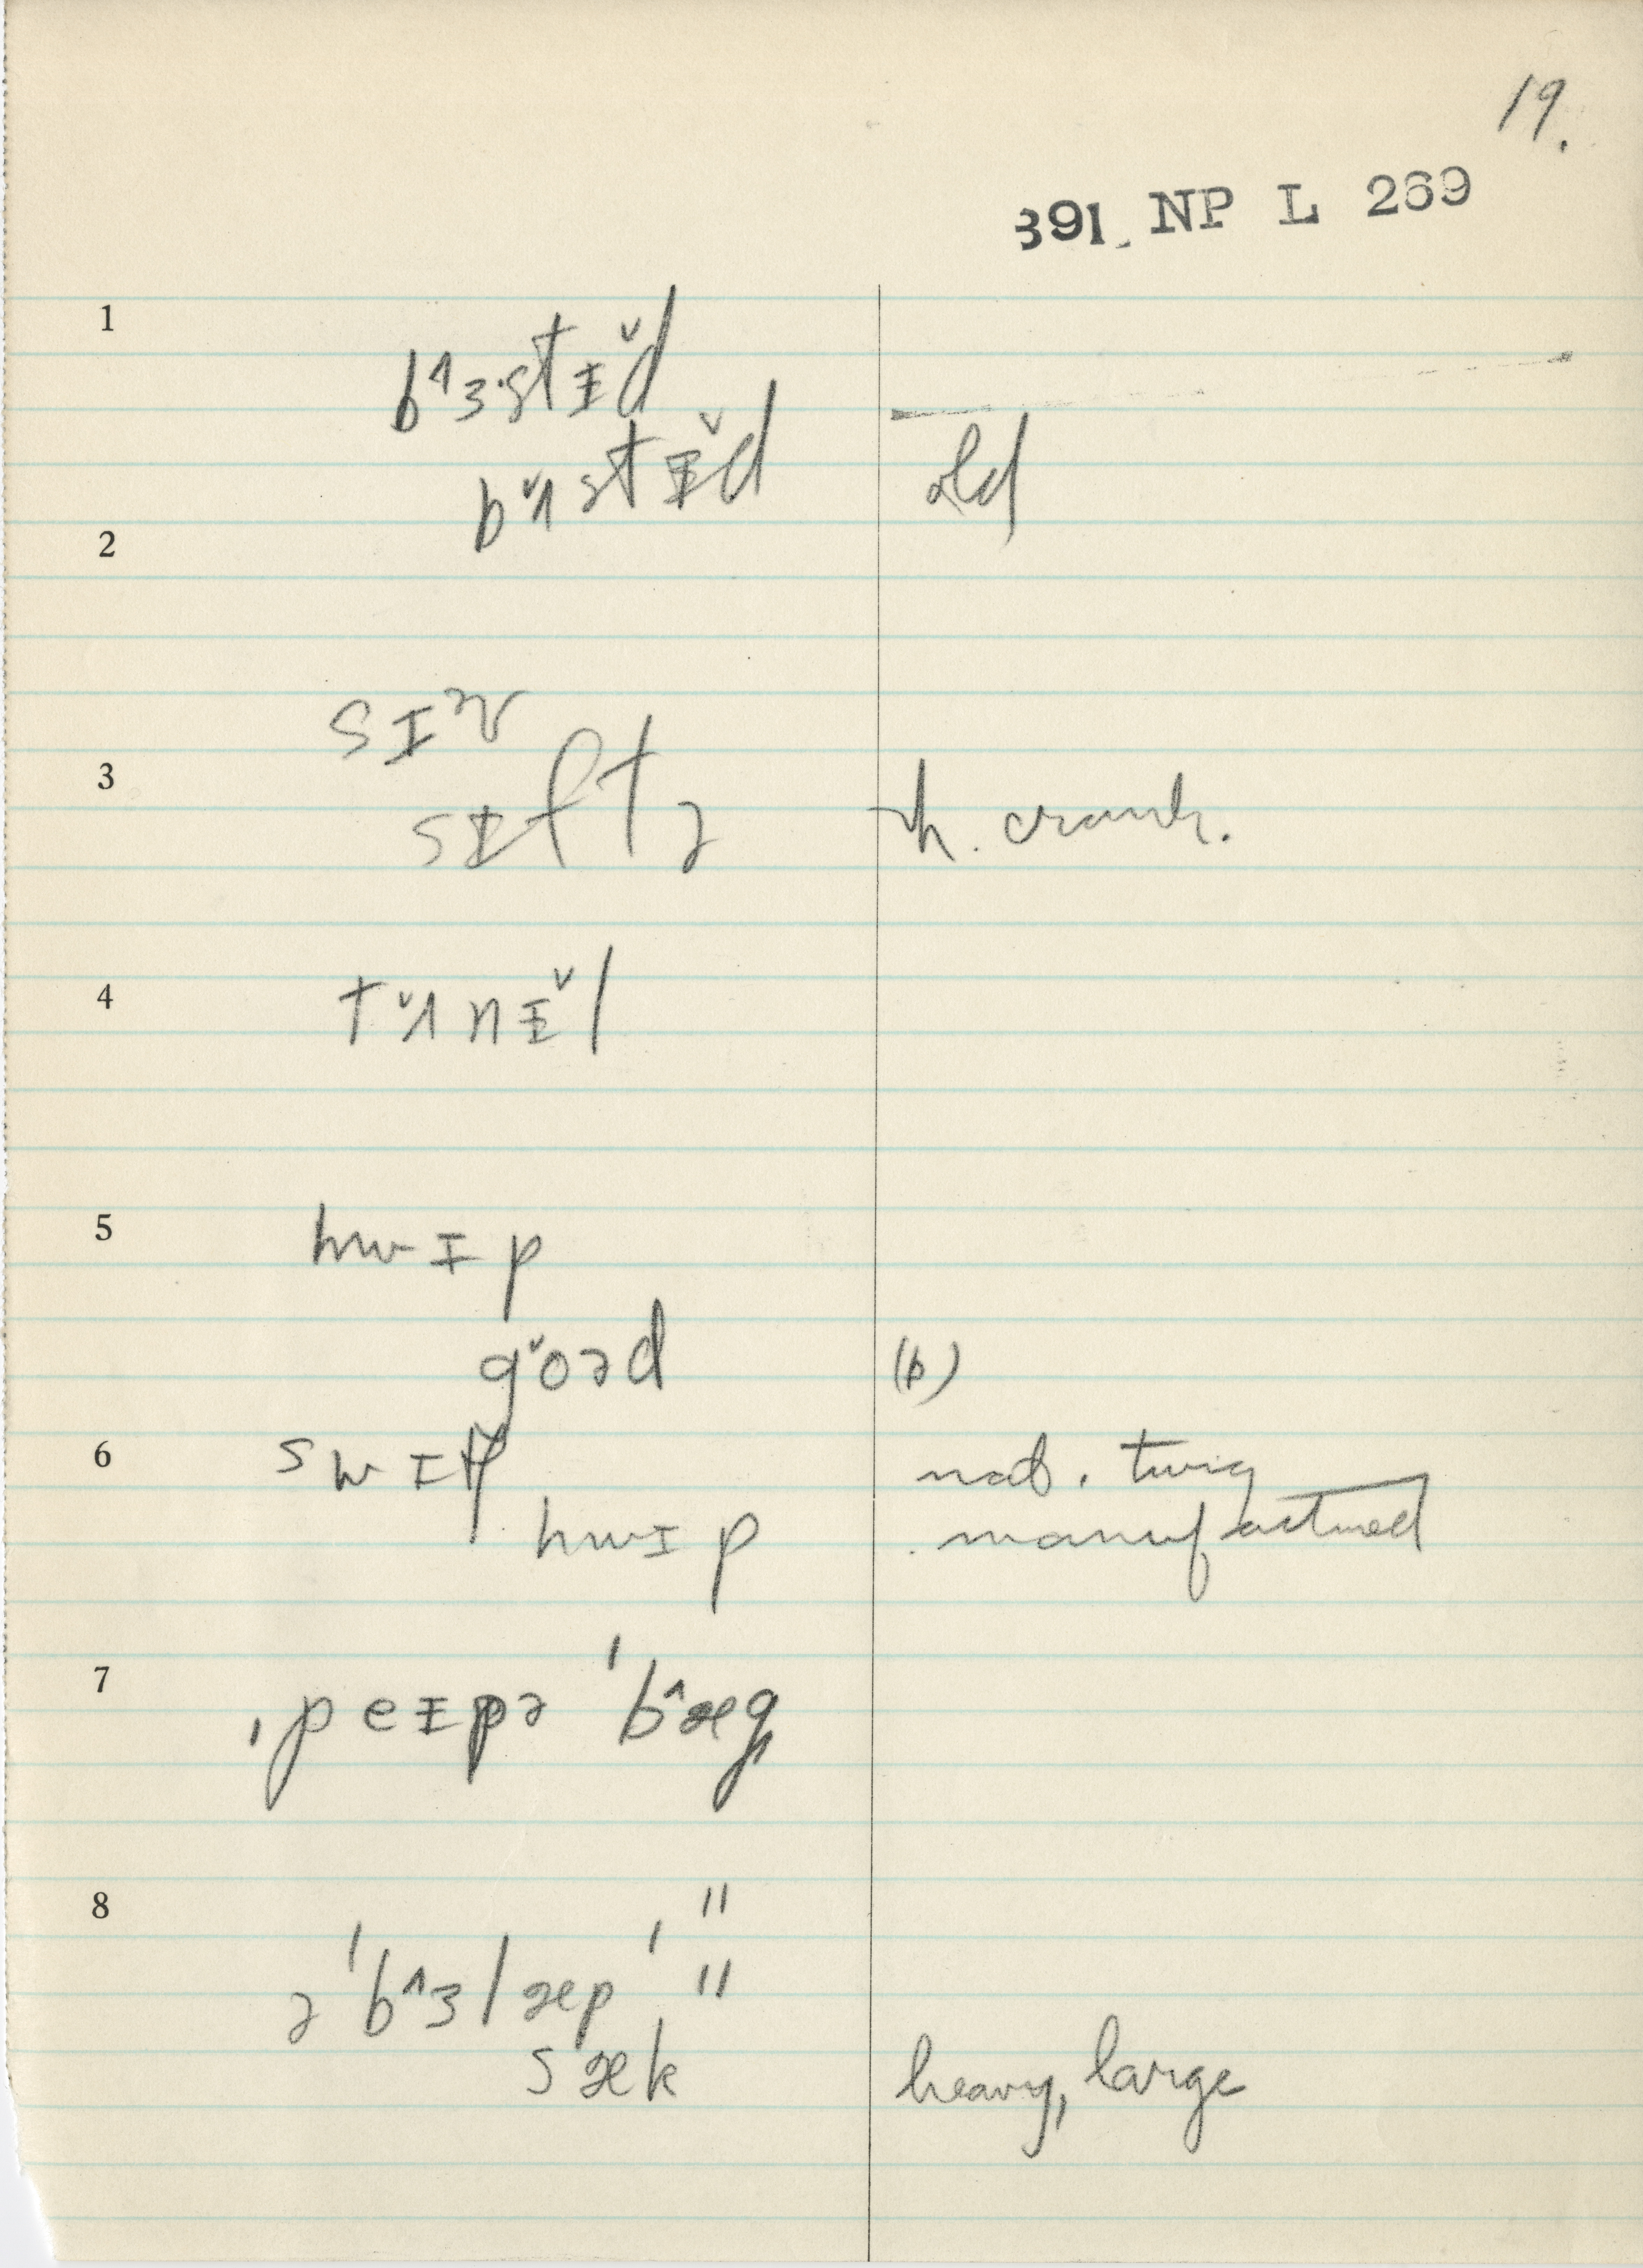 19.
391 NP L 269
1
bᶺɜ·stɪ̵̆d
bʌ̆stɪ̵̆d old
2
sɪv
3
sɪftə h. crank.
4
tʌ̆nɪ̵̆l
5
hwɪp
gŏəd (b)
6
swɪp nat. twig
hwɪp . manufactured
7
ˌpeɪpə ˈbᶺæg
8
"
əˈbᶺɜlæpˈ "
sæk heavy, large